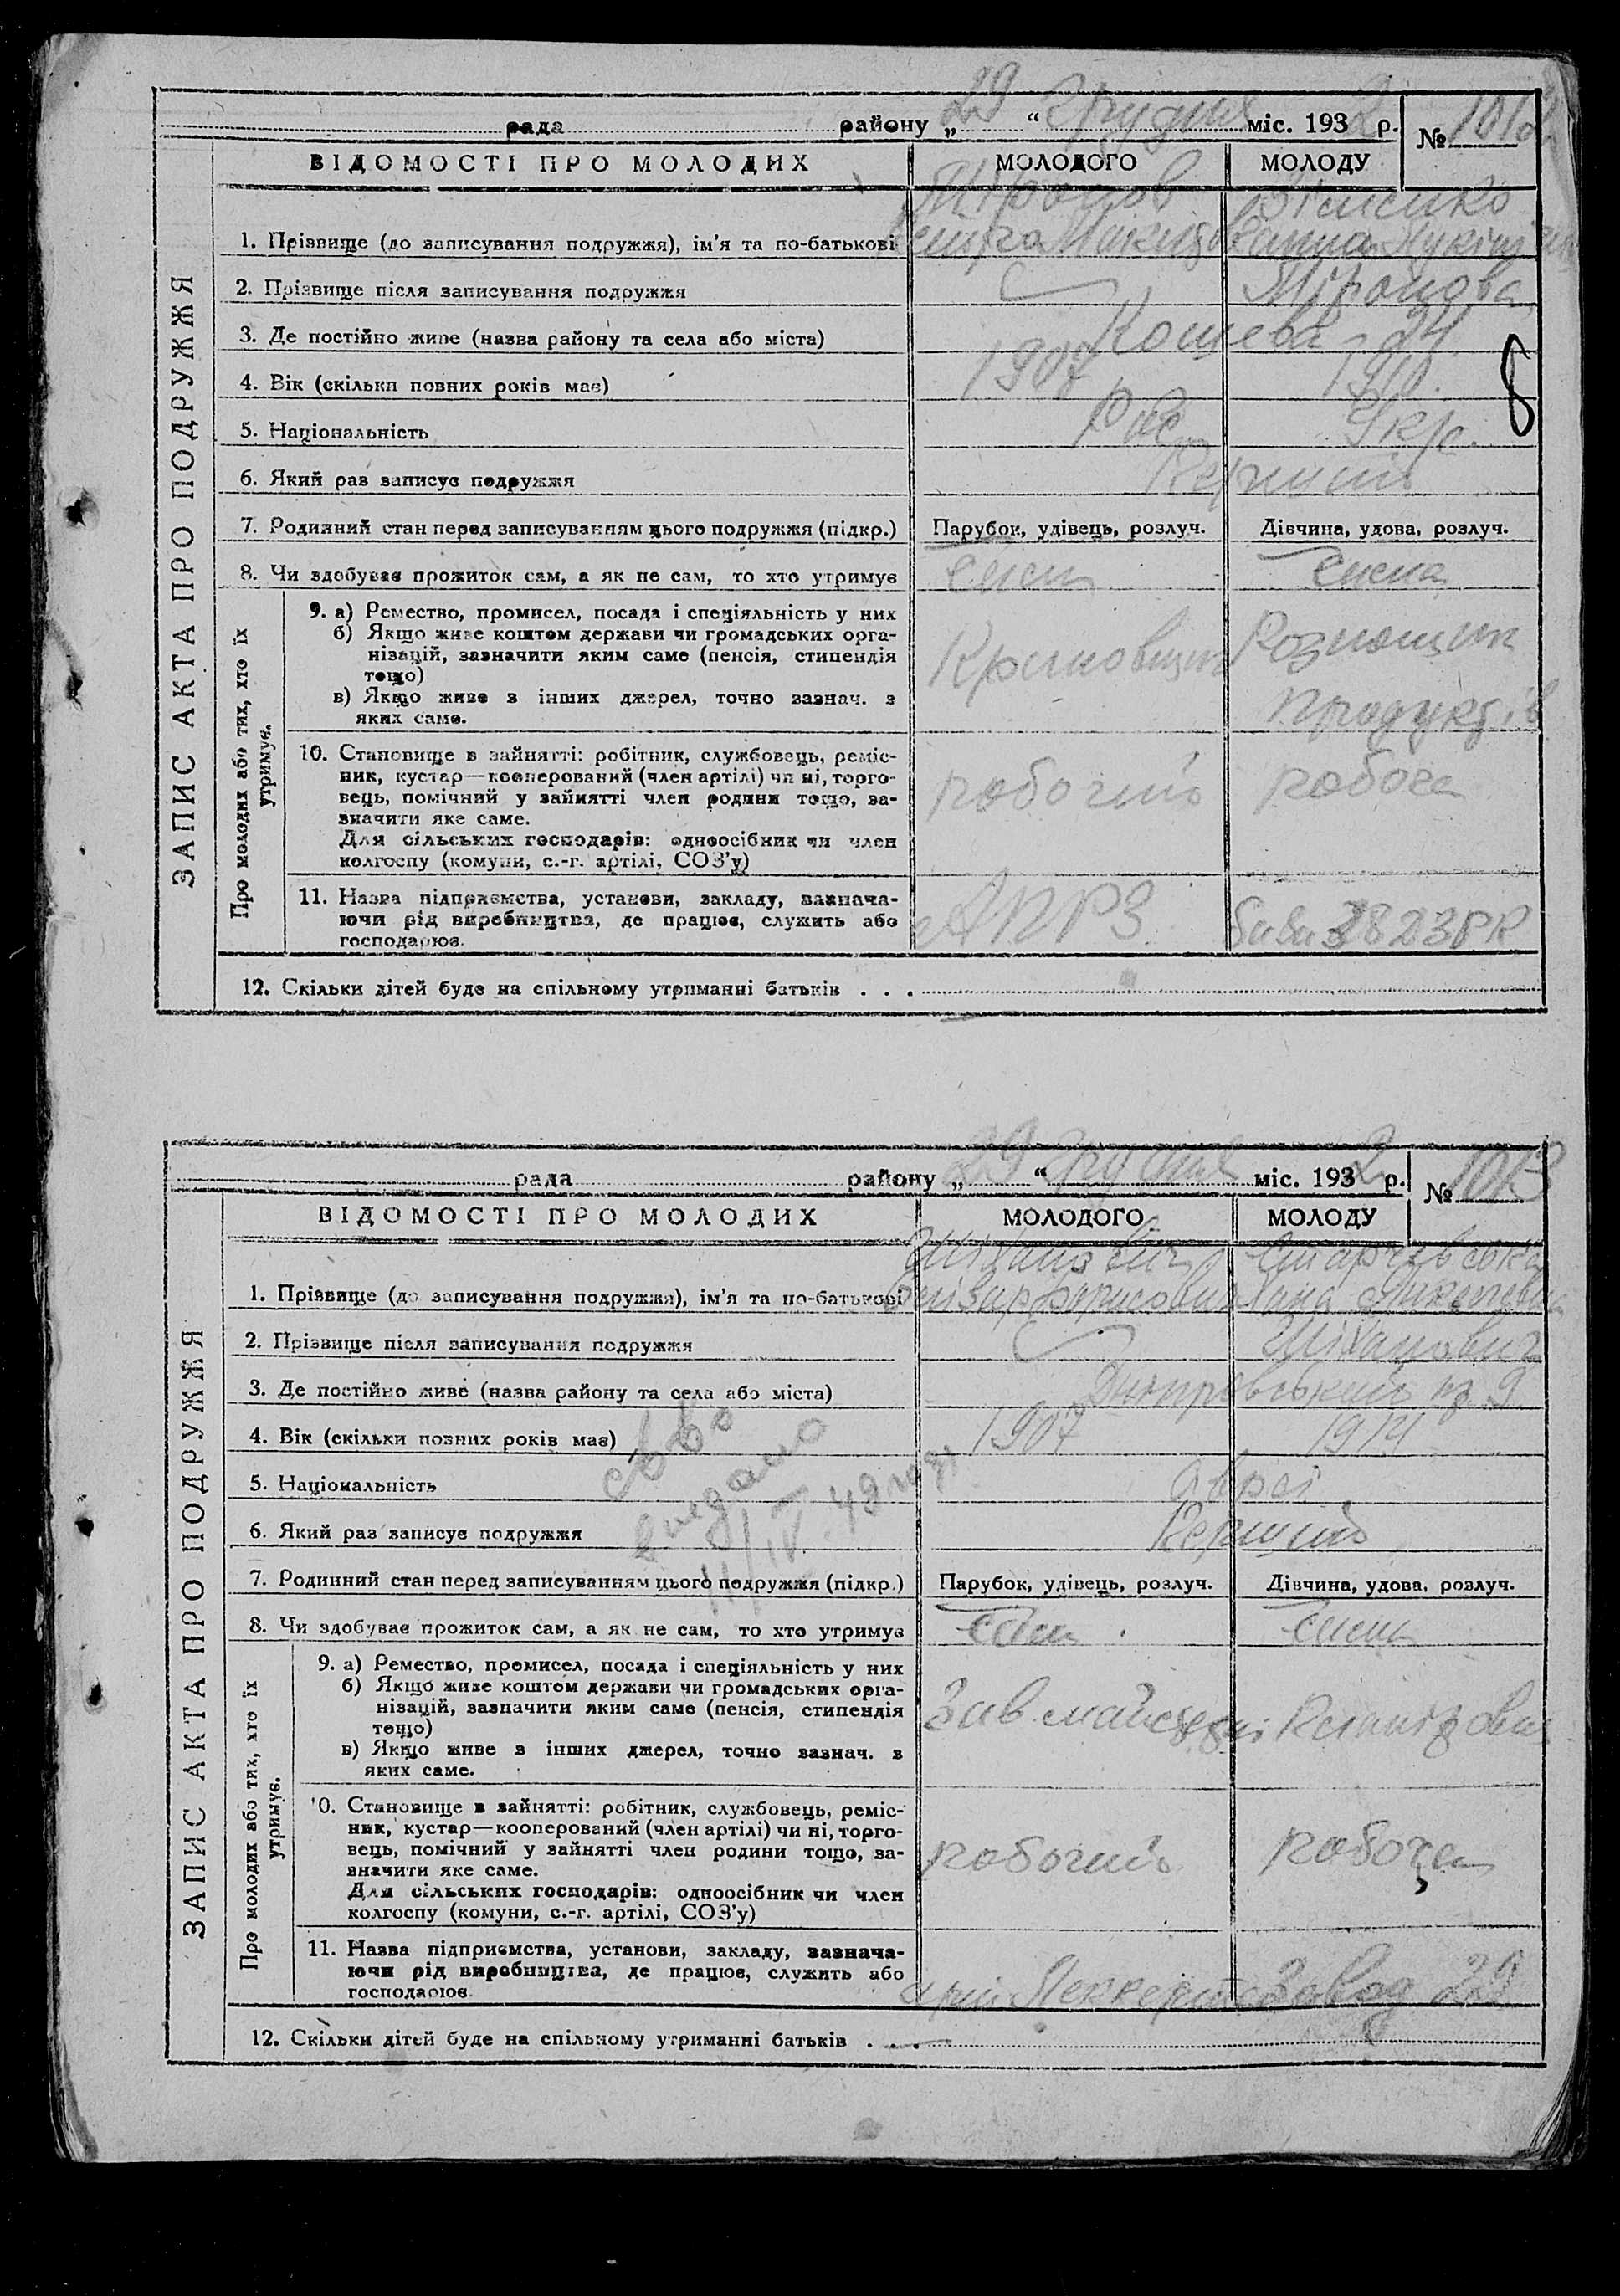 рада району „29“ Грудня міс. 1932 р. № 1012
ВІДОМОСТІ ПРО МОЛОДИХ МОЛОДОГО МОЛОДУ
ЗАПИС АКТА ПРО ПОДРУЖЖЯ
Міронов
1. Прізвище (до записування подружжя), ім'я та по-батькові
2. Прізвище після записування подружжя Міронова
3. Де постійно живе (назва району та села або міста)
4. Вік (скільки повних років має) 1907 1910.
8
5. Національність Рос Укр.
6. Який раз записує подружжя Перший
7. Родинний стан перед записуванням цього подружжя (підкр.) Парубок, удівець, розлуч. Дівчина, удова, розлуч.
8. Чи здобуває прожиток сам, а як не сам, то хто утримує сам сама
Про молодих або тих, хто їх утримує.
9. а) Ремество, промисел, посада і спеціяльність у них
б) Якщо живе коштом держави чи громадських орга-
нізацій, зазначити яким саме (пенсія, стипендія
тощо)
в) Якщо живе з інших джерел, точно зазнач. з
яких саме.
Крановщик Рознощик
продуктів
10. Становище в зайнятті: робітник, службовець, реміс-
ник, кустар—кооперований (член артілі) чи ні, торго-
вець, помічний у зайнятті член родини тощо, за-
значити яке саме.
Для сільських господарів: одноосібник чи член
колгоспу (комуни, с.-г. артілі, СОЗ'у)
робочий робоча
11. Назва підприємства, установи, закладу, зазнача-
ючи рід виробництва, де працює, служить або
господарює.
ДПРЗ
12. Скільки дітей буде на спільному утриманні батьків . . .
рада району „29“ Грудня міс. 1932 р. № 1013
ВІДОМОСТІ ПРО МОЛОДИХ МОЛОДОГО МОЛОДУ
ЗАПИС АКТА ПРО ПОДРУЖЖЯ
Шіханович
1. Прізвище (до записування подружжя), ім'я та по-батькові Борисович
2. Прізвище після записування подружжя Шіханович
3. Де постійно живе (назва району та села або міста)
4. Вік (скільки повних років має) 1907 1914
5. Національність євреї
6. Який раз записує подружжя Перший
7. Родинний стан перед записуванням цього подружжя (підкр.) Парубок, удівець, розлуч. Дівчина, удова, розлуч.
8. Чи здобуває прожиток сам, а як не сам, то хто утримує сам сама
Про молодих або тих, хто їх утримує.
9. а) Ремество, промисел, посада і спеціяльність у них
б) Якщо живе коштом держави чи громадських орга-
нізацій, зазначити яким саме (пенсія, стипендія
тощо)
в) Якщо живе з інших джерел, точно зазнач. з
яких саме.
Зав.
10. Становище в зайнятті: робітник, службовець, реміс-
ник, кустар—кооперований (член артілі) чи ні, торго-
вець, помічний у зайнятті член родини тощо, за-
значити яке саме.
Для сільських господарів: одноосібник чи член
колгоспу (комуни, с.-г. артілі, СОЗ'у)
робочий робоча
11. Назва підприємства, установи, закладу, зазнача-
ючи рід виробництва, де працює, служить або
господарює.
Завод 29
12. Скільки дітей буде на спільному утриманні батьків . . .